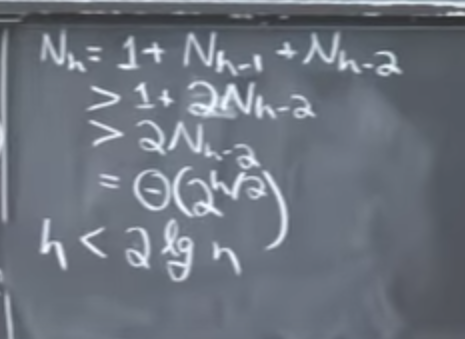 Nₕ = 1 + Nₕ₋₁ + Nₕ₋₂
> 1 + 2Nₕ₋₂
> 2Nₕ₋₂
= Θ(2^(h/2))
h < 2 lg n